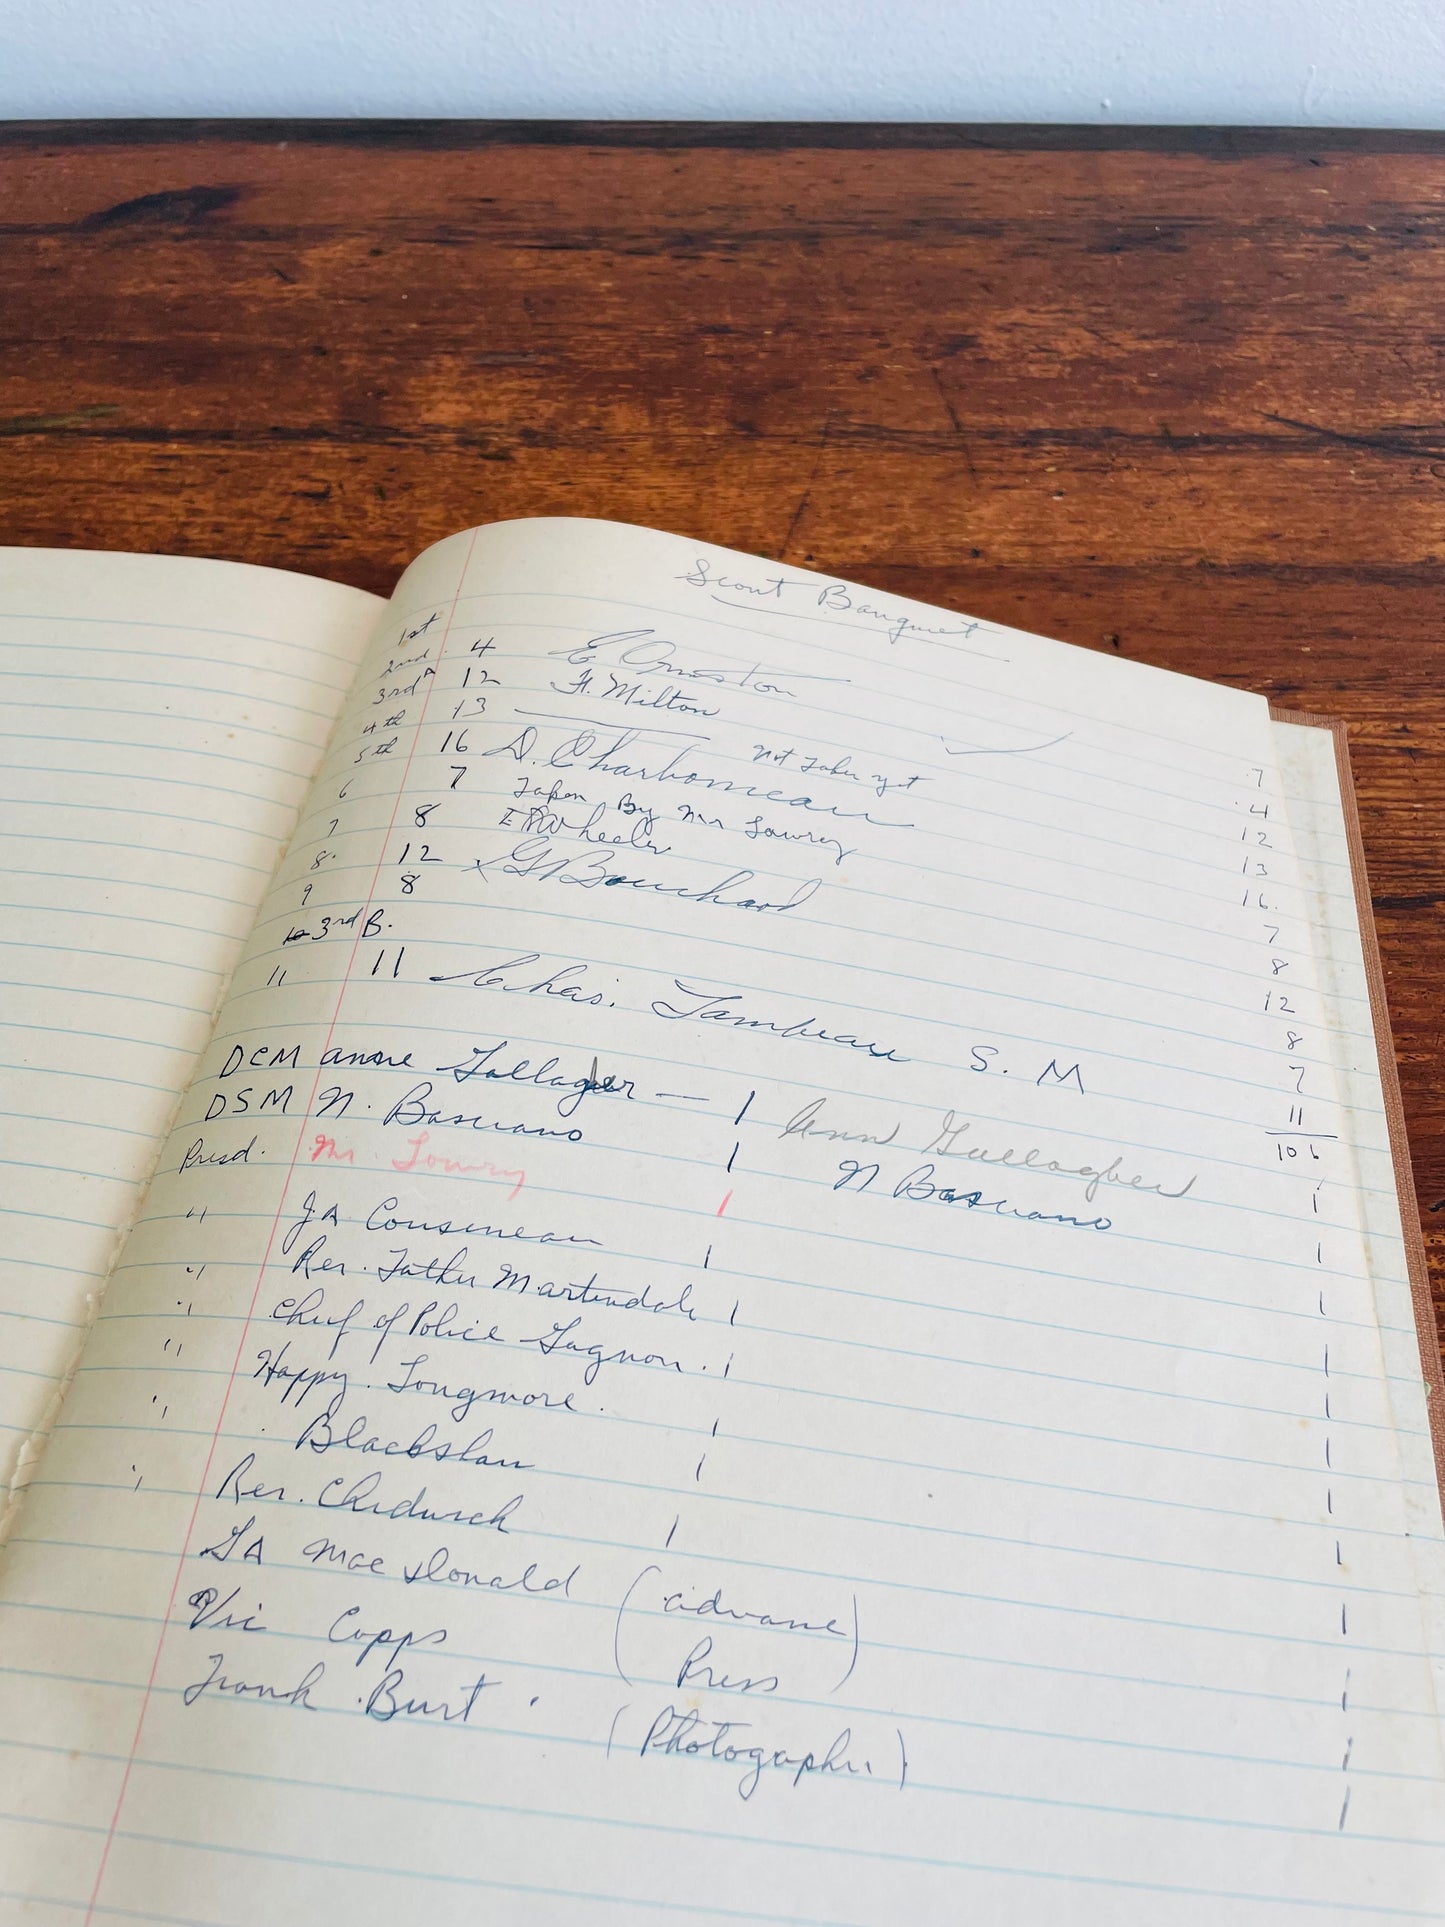 Scout Banquet
1st 4 E Ormston
2nd 12 H. Milton
3rd A 13 Not Taken yet
4th 16 D. Charbonneau
5th 7 Taken By Mr Lowry
6 8 E Wheeler
7 12 x G Bouchard
8. 8
9
3rd B.
11 11 Chas. Tambeau S. M
7
4
12
13
16.
7
8
12
8
7
11
106
DCM Anne Gallagher — 1 Ann Gallagher 1
DSM N. Basciano 1 N Basciano 1
Presd. Mr. Lowry 1 1
" J.A Cousineau 1 1
" Rev. Father Martindale 1 1
" Chief of Police Gagnon. 1 1
" Happy. Longmore. 1 1
" Blackshaw 1 1
" Rev. Chidwick 1 1
GA MacDonald (advance) 1
Vic Capps Press 1
Frank Burt (Photographer) 1